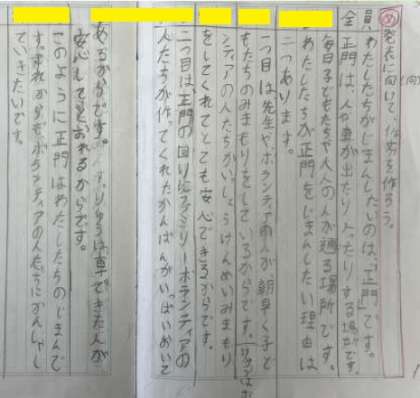 め 発表に向けて、作文を作ろう。
全員 わたしたちがじまんしたいのは、「正門」です。
正門は、人や車が出たり入ったりする場所です。
毎日子どもたちや大人の人が通る場所です。
わたしたちが正門をじまんしたい理由は
二つあります。
一つ目は先生や、ボランティアの人が、朝早く子ど
もたちのみまもりをしているからです。
ンティアの人たちが、いっしょうけんめいみまもり
をしてくれてとても安心できるからです。
二つ目は正門の回りにファミリーボランティアの
人たちが作ってくれたかんばんがいっぱいおいて
あるからです。りゆうは車できた人が
安心してとおれるからです。
このように正門はわたしたちのじまんで
す。これからも、ボランティアの人たちにかんしゃし
ていきたいです。